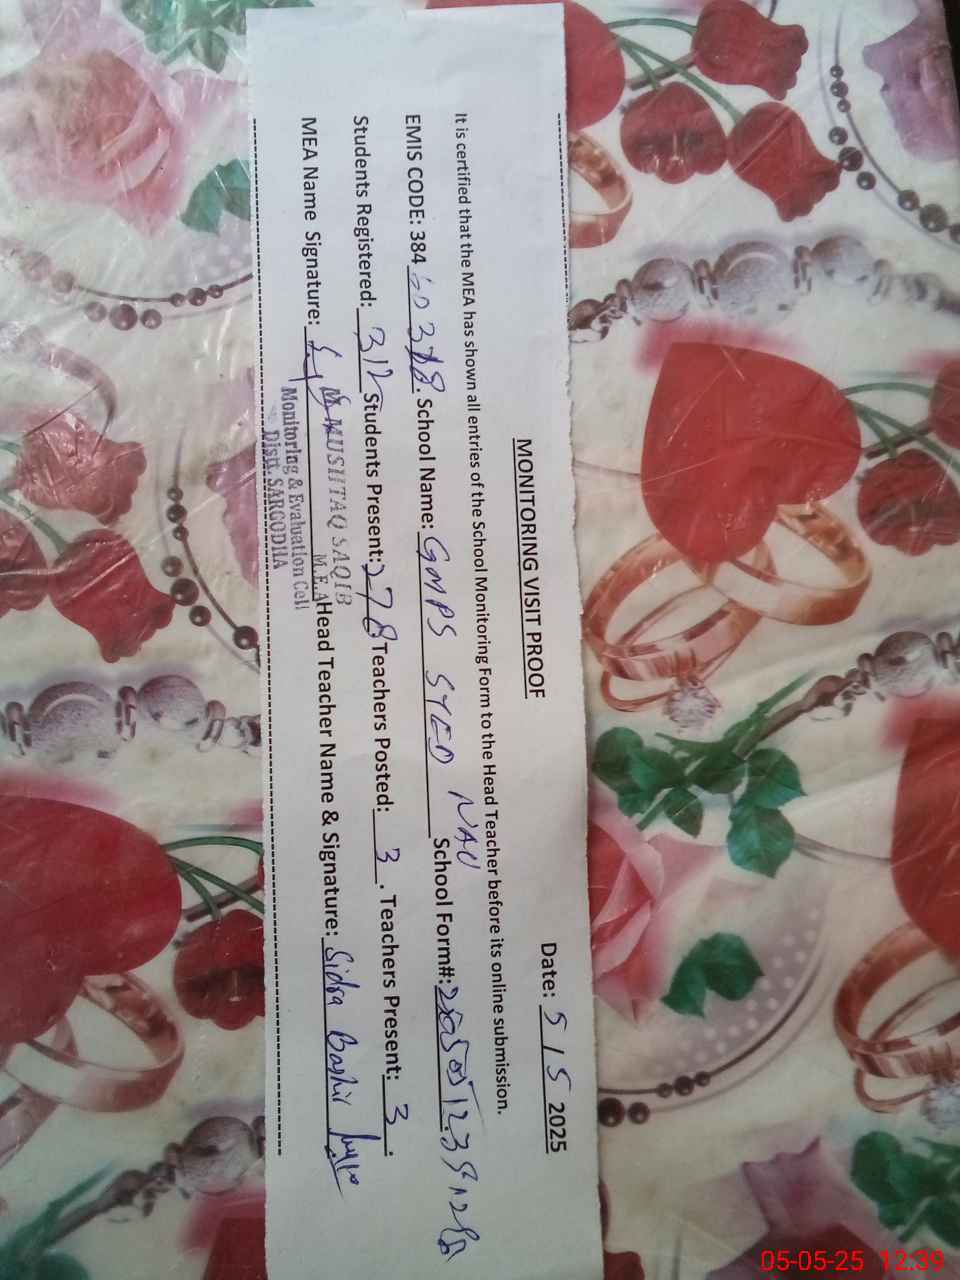 MONITORING VISIT PROOF
Date: 5/5 2025
It is certified that the MEA has shown all entries of the School Monitoring Form to the Head Teacher before its online submission.
EMIS CODE: 384 School Name: GMPS SYED NAU School Form#:
Students Registered: 312 Students Present: 278 Teachers Posted: 3. Teachers Present: 3.
MEA Name Signature: Head Teacher Name & Signature: Sidra Bashir
MUSHTAQ SAQIB
M.E.A
Monitoring & Evaluation Cell
Distt. SARGODHA
05-05-25 12:39